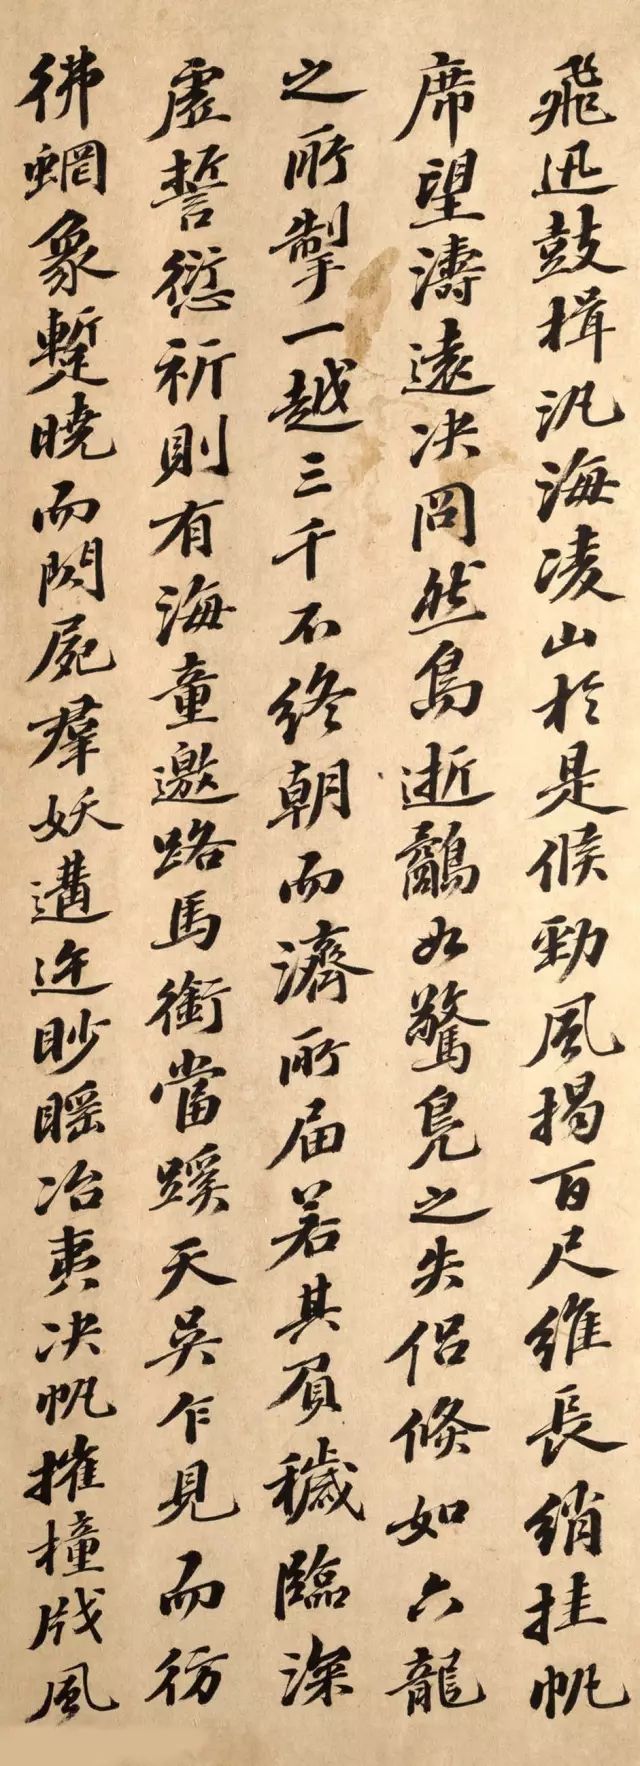 飛迅鼓楫汎海凌山於是候勁風揭百尺維長綃挂帆
席望濤遠决冏然鳥逝鷸如驚鳧之失侣倐如六龍
之所掣一越三千不終朝而濟所届若其負穢臨深
虚誓愆祈則有海童邀路馬銜當蹊天吳乍見而彷
彿蝄象蹔曉而閃屍羣妖遘迕眇䁘冶夷决帆摧橦戕風